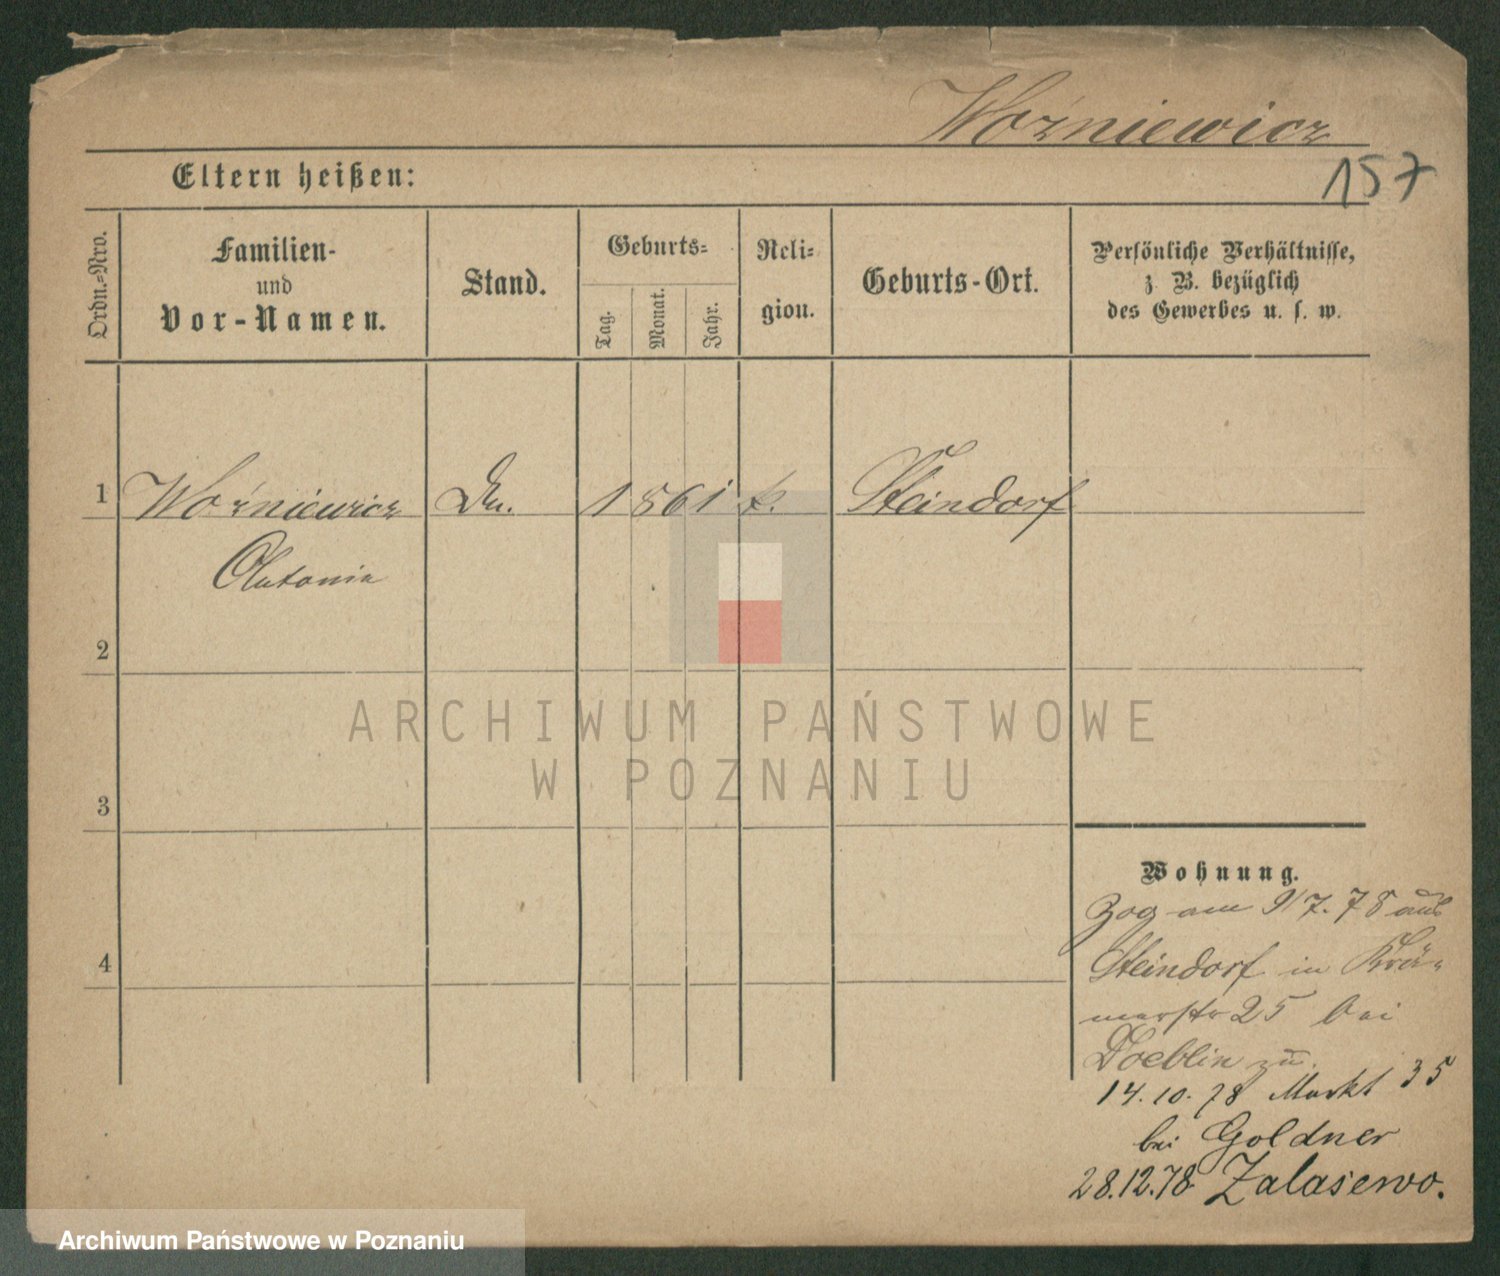 Woźniewicz
157
Eltern heißen:
Ordn.-Nro.
Familien-
und
Vor-Namen.
Stand.
Geburts-
Tag.
Monat.
Jahr.
Reli-
gion.
Geburts-Ort.
Persönliche Verhältnisse,
z. B. bezüglich
des Gewerbes u. s. w.
1 Woźniewicz 1861 k. Steindorf
Antonie
2
3
4
ARCHIWUM PAŃSTWOWE
W POZNANIU
Wohnung.
Zog am 9/7. 78 aus
Steindorf in Krä-
merstr 25 bei
Doeblin zu.
14. 10. 78 Markt 35
bei Goldner
28.12.78 Zalasewo.
Archiwum Państwowe w Poznaniu